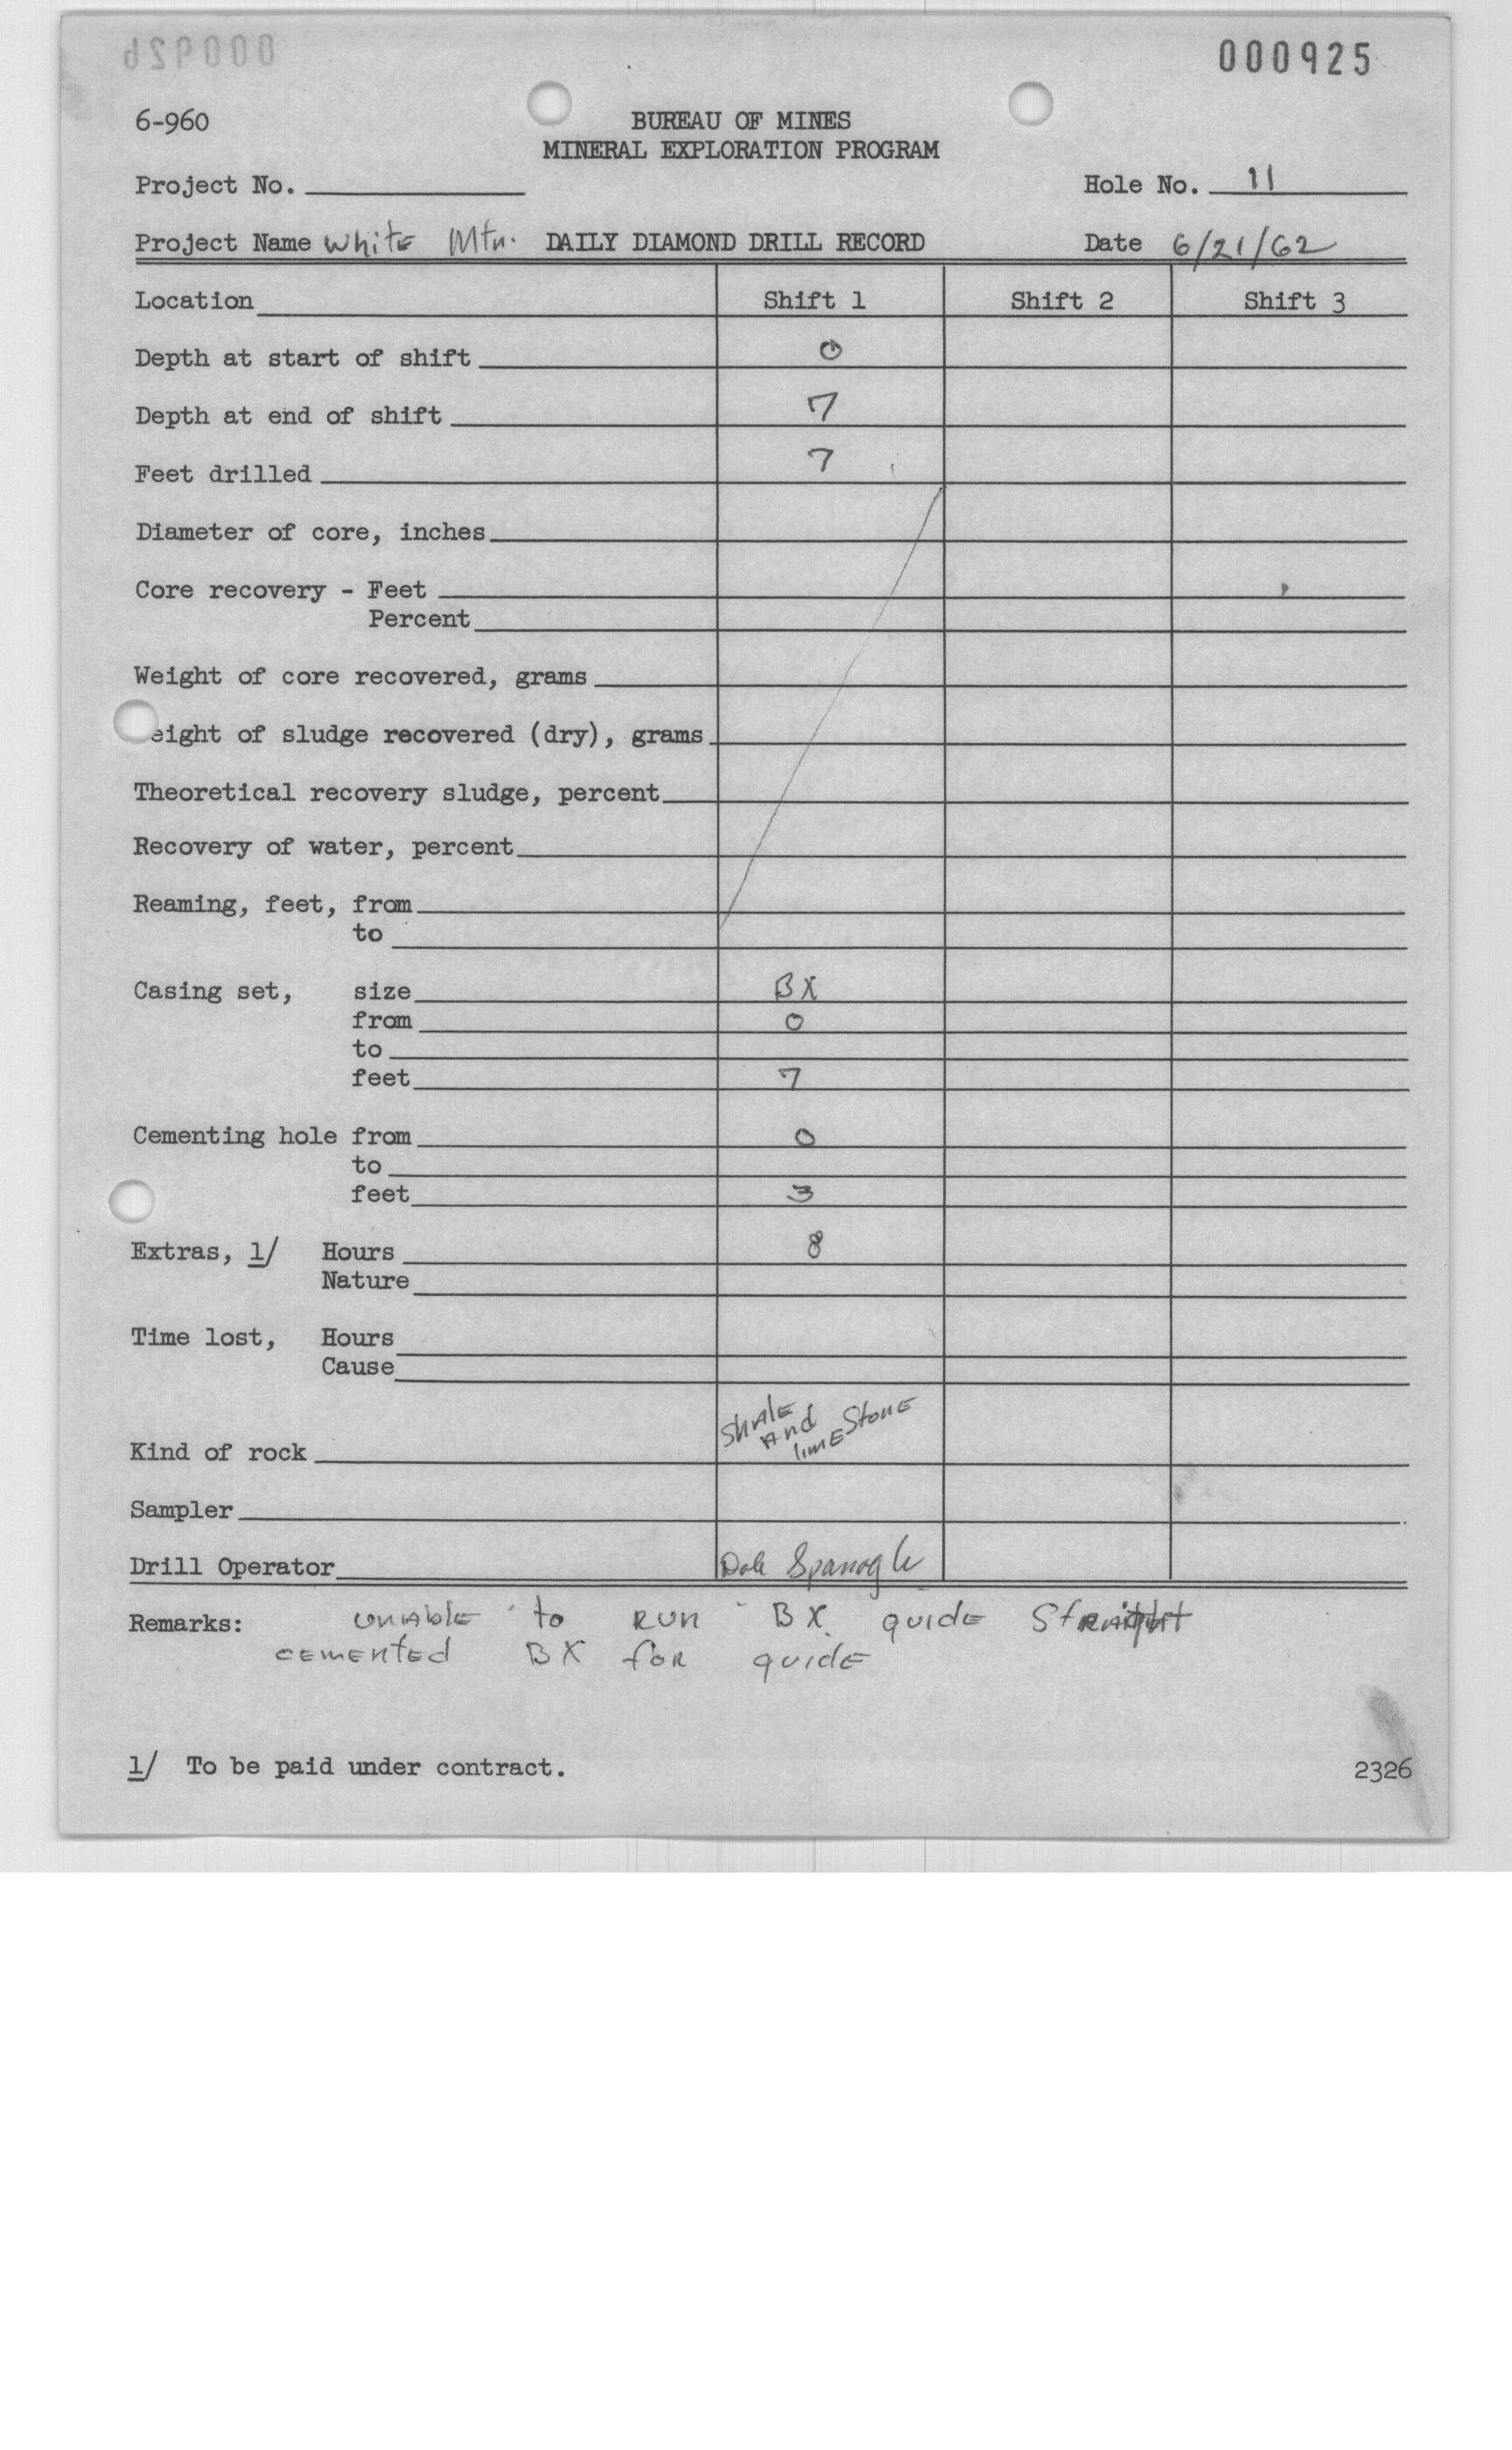 000926
000925
6-960
BUREAU OF MINES
MINERAL EXPLORATION PROGRAM
Project No.
Hole No. 11
Project Name White Mtn. DAILY DIAMOND DRILL RECORD Date 6/21/62
Location Shift 1 Shift 2 Shift 3
Depth at start of shift 0
Depth at end of shift 7
Feet drilled 7
Diameter of core, inches
Core recovery - Feet
Percent
Weight of core recovered, grams
eight of sludge recovered (dry), grams
Theoretical recovery sludge, percent
Recovery of water, percent
Reaming, feet, from
to
Casing set, size BX
from 0
to
feet 7
Cementing hole from 0
to
feet 3
Extras, 1/ Hours 8
Nature
Time lost, Hours
Cause
Shale
And
limEStone
Kind of rock
Sampler
Drill Operator Dale Spanogle
Remarks: unable to Run BX guide Straight
cemented BX for guide
1/ To be paid under contract.
2326